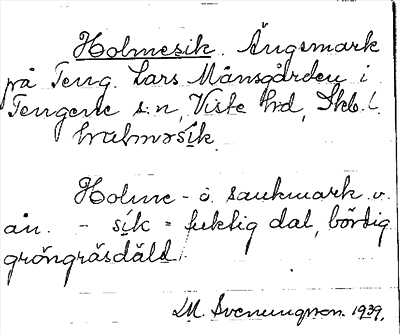 Holmesik. Ängsmark
på Teng. Lars Månsgården i
Tengene s:n, Viste hrd, Skb. l.
hɷlməsik
Holme - ö. sankmark v.
ån. - sik = fuktig dal, bördig
gröngräsdäld.
M. Svenungsson. 1939.